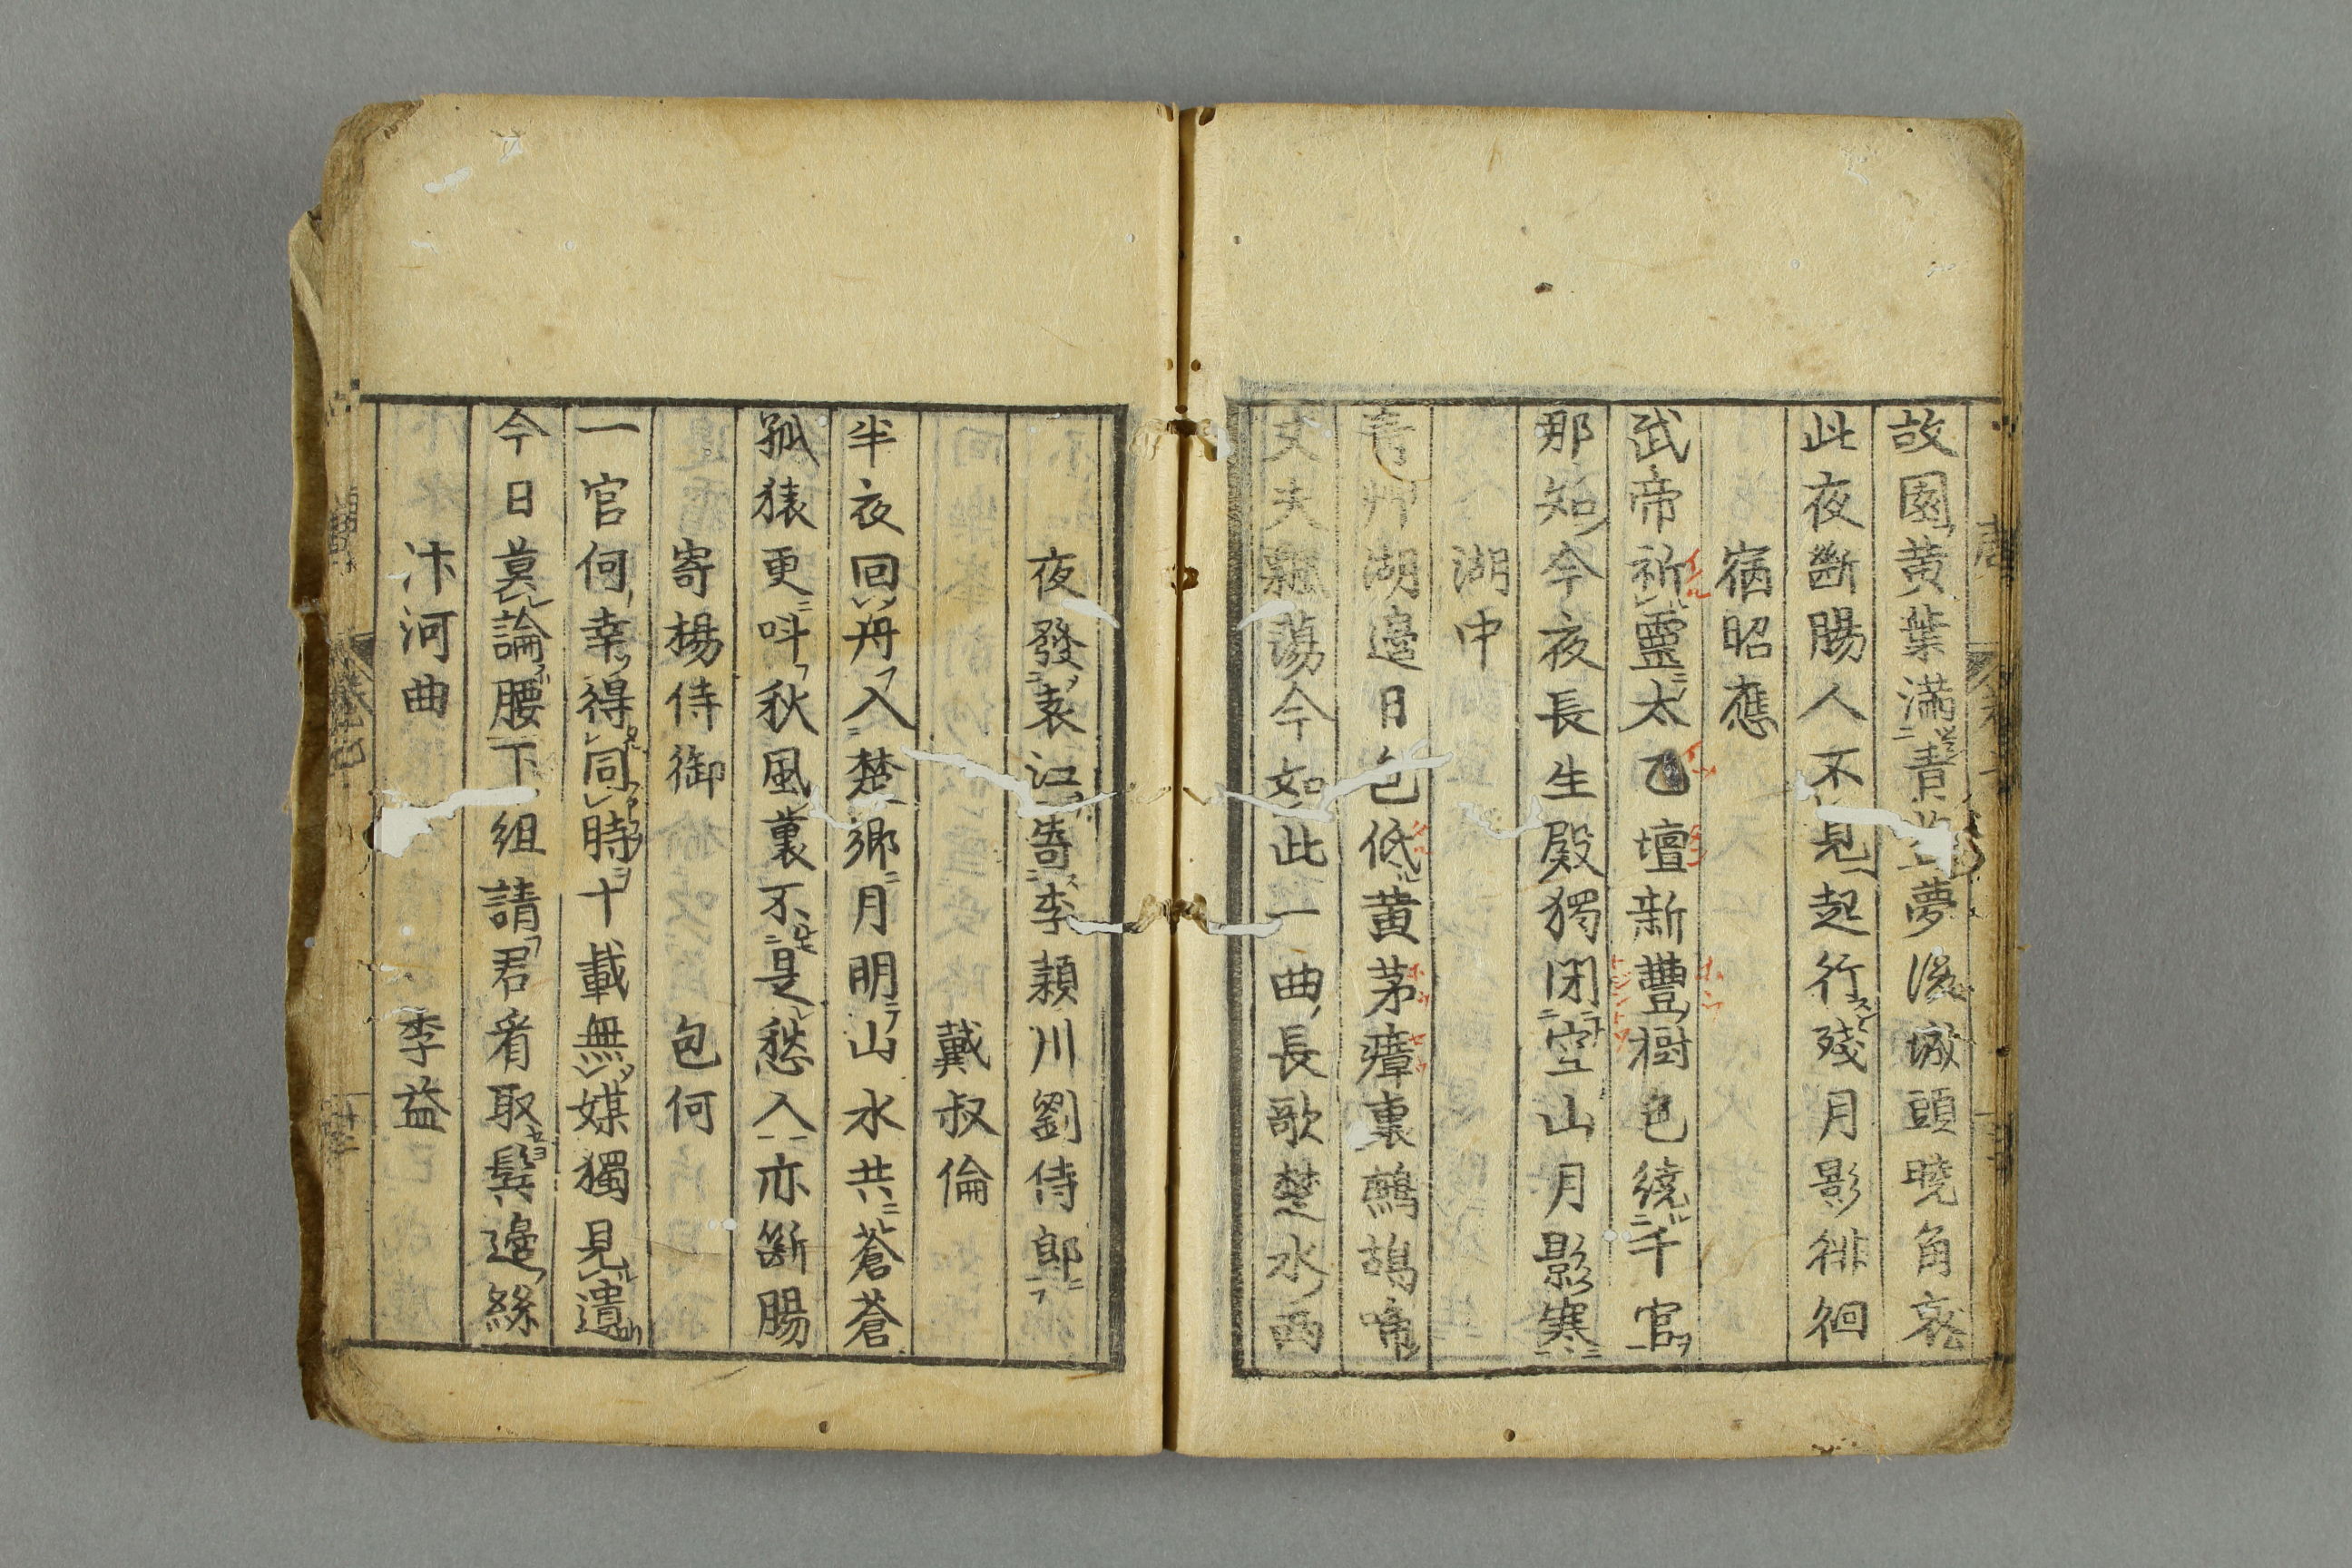 故園黄葉滿青苔夢後城頭曉角哀
此夜斷腸人不見起行殘月影徘徊
宿昭應
武帝祈靈太乙壇新豊樹色繞千官
那知今夜長生殿獨閉空山月影寒
湖中
青艸湖邉日色低黄茅瘴裏鷓鴣啼
丈夫飄蕩今如此一曲長歌楚水西
夜發袁江寄李穎川劉侍郎
戴叔倫
半夜回舟入楚鄉月明山水共蒼蒼
孤猿更叫秋風裏不是愁人亦断腸
寄楊侍御 包何
一官何幸得同時十載無媒獨見遺
今日莫論腰下組請君看取鬂邉絲
汴河曲 李益